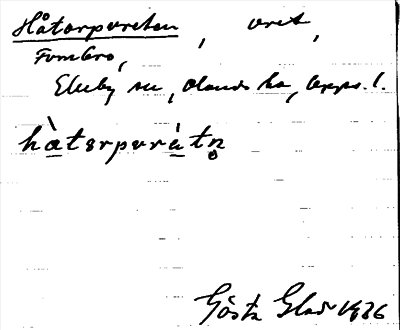 Håtorpureten, vret,
Fornbro,
Ekeby sn, Olands hd, Upps. l.
hàtɘrpvràtn̥
Gösta Glad 1926